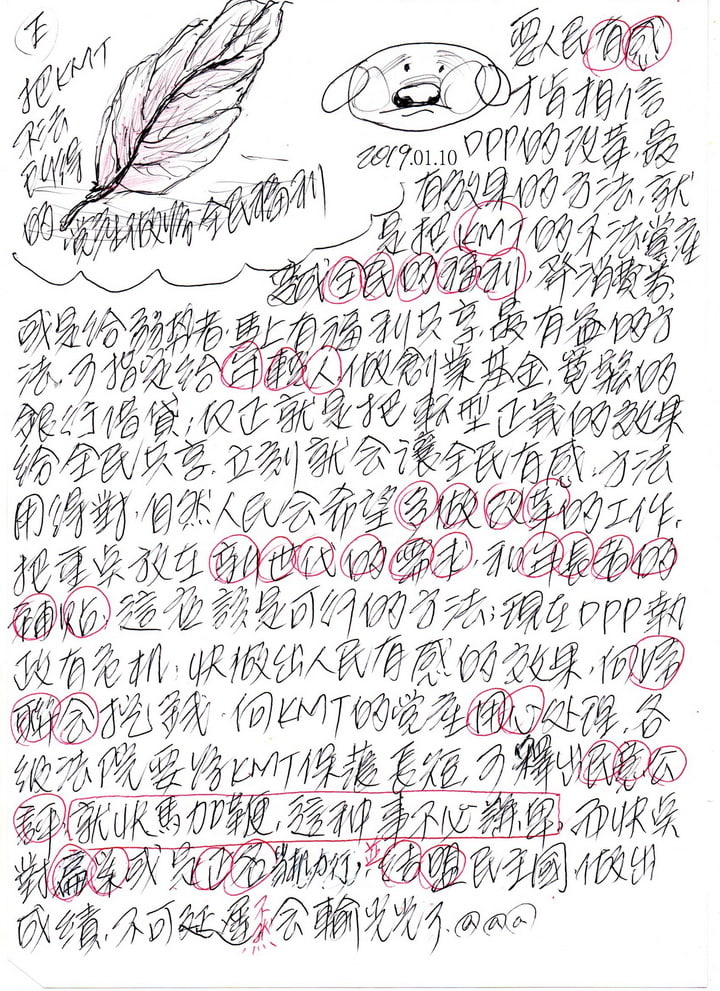 王
把KMT
不法
取得
的黨產做為全民福利
要人民有感
才肯相信
2019.01.10 DPP的改革,最
有效果的方法,就
是把KMT的不法黨產
變成全民的福利,發消費券,
或是給弱勢者,馬上有福利共享,最有益的方
法,可指定給年輕人做創業基金,
銀行借貸;反正就是把轉型正義的效果
給全民共享,立刻就会讓全民有感,方法
用得對,自然人民会希望多做改革的工作,
把重點放在新世代的需求,和年長者的
補貼;這应該是可行的方法;現在DPP執
政有危机;快做出人民有感的效果,向婦
聯会挖錢,向KMT的党產用心处理,各
級法院要為KMT保護長短,可釋出民意公
評;就快馬加鞭,這种事不必難堪,而快點
對或是正名;並結盟民主國,做出
成績,不可延遲不然会輸光光了.@@@